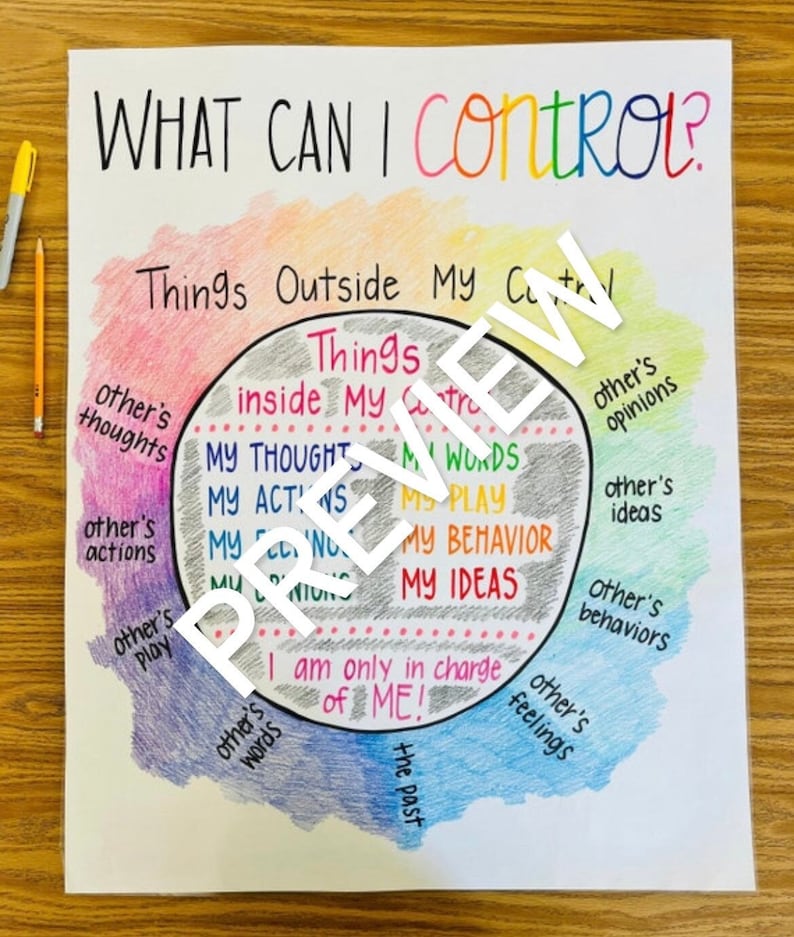 WHAT CAN I CONTROL?
Things Outside My Control
Things
inside My Control
MY THOUGHTS
MY WORDS
MY ACTIONS
MY PLAY
MY FEELINGS
MY BEHAVIOR
MY OPINIONS
MY IDEAS
I am only in charge
of ME!
other's
thoughts
other's
actions
other's
play
other's
words
the past
other's
feelings
other's
behaviors
other's
ideas
other's
opinions
PREVIEW